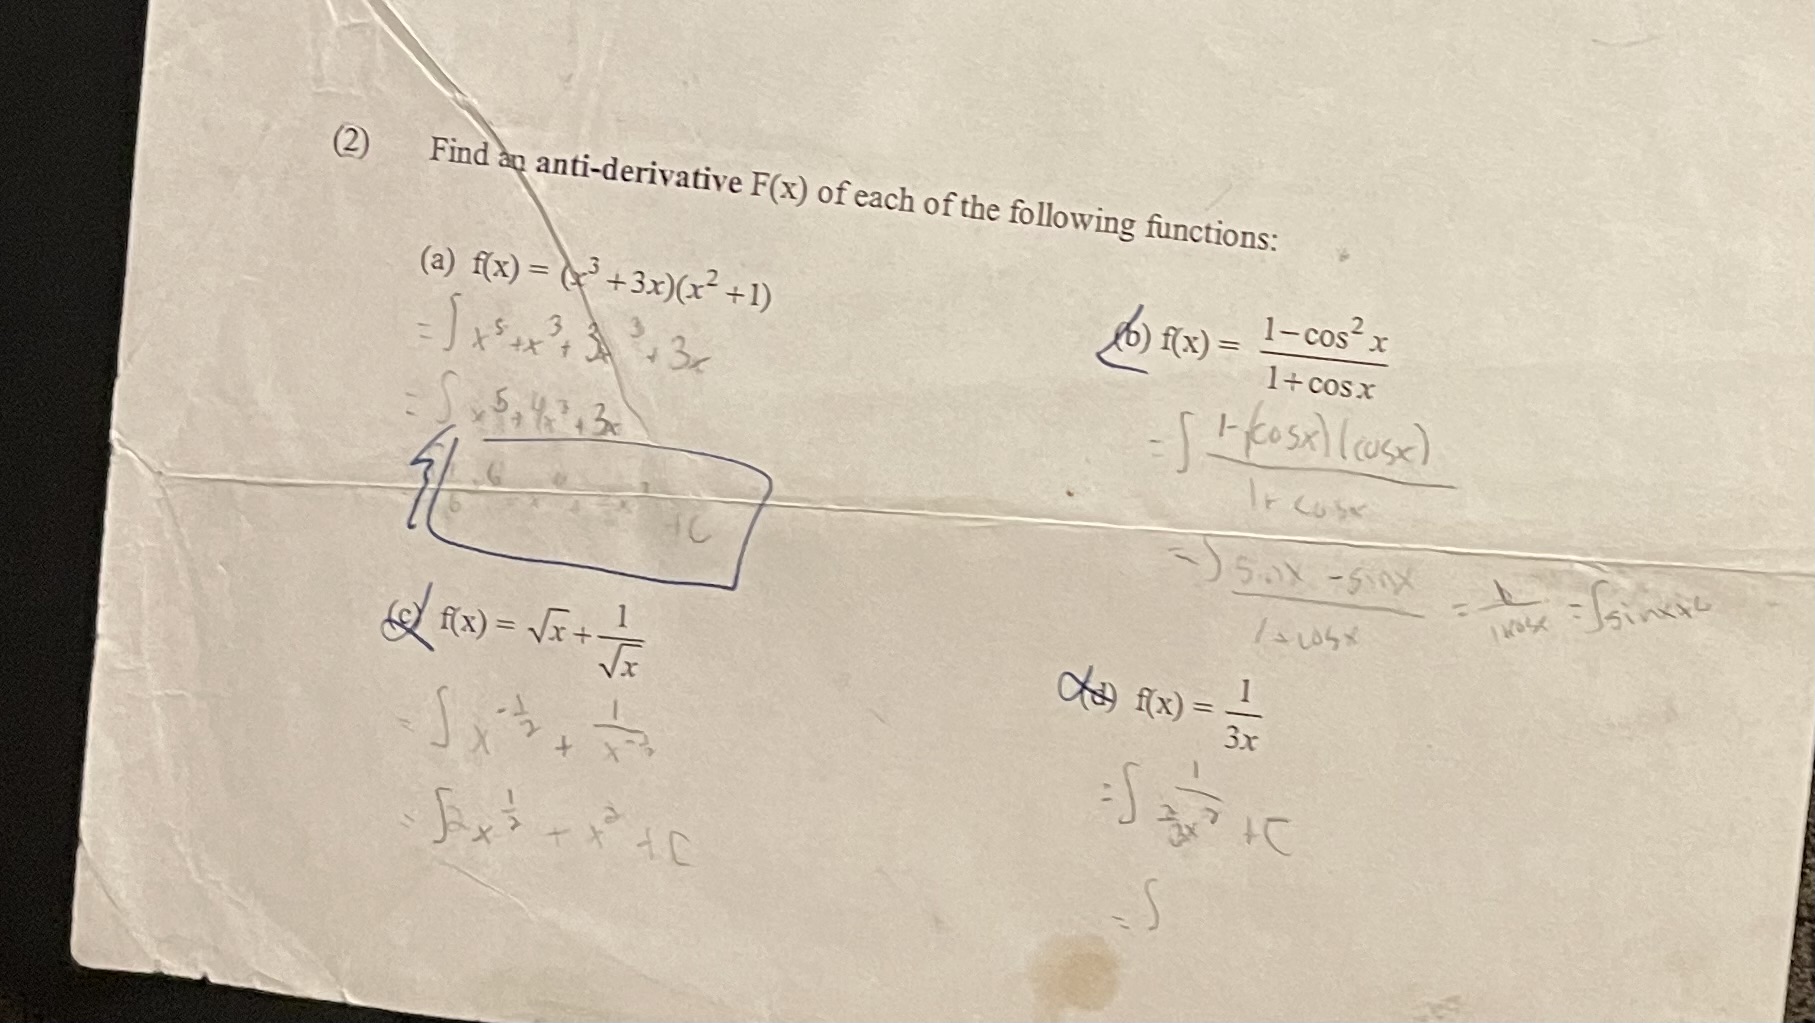 (2) Find an anti-derivative F(x) of each of the following functions:
(a) f(x) = (x³ + 3x)(x² + 1)
= ∫ x⁵ + x³ + 3x³ + 3x
= ∫ x⁵ + 4x³ + 3x
+C
(b) f(x) = (1 − cos² x)/(1 + cos x)
= ∫ (1 − (cosx)(cosx))/(1 + cosx)
= ∫ (sinx − sinx)/(1 + cosx) = /(1+cosx) = ∫ sinx
(c) f(x) = √x + 1/√x
= ∫ x^(-1/2) + 1/x^(-1/2)
= ∫ 2x^(1/2) + x² + C
(d) f(x) = 1/(3x)
= ∫ 1/ + C
= ∫